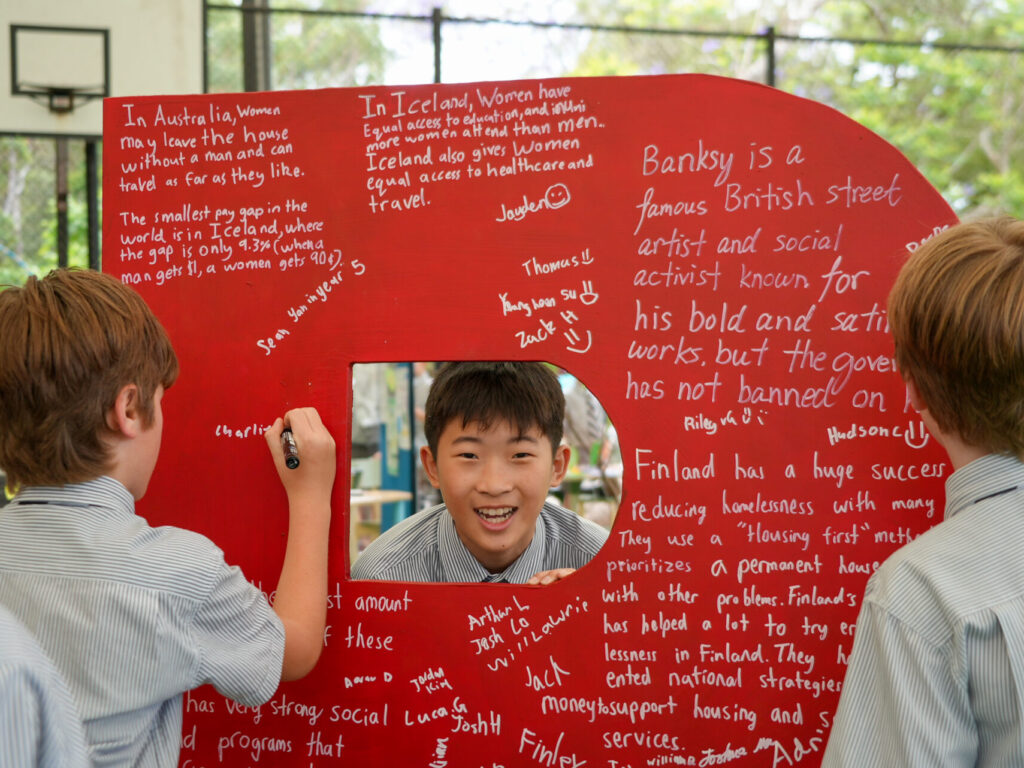 In Australia, Women
may leave the house
without a man and can
travel as far as they like.
The smallest pay gap in the
world is in Iceland, where
the gap is only 9.3% (when a
man gets $1, a women gets 90¢).
Sean Yan in year 5
In Iceland, Women have
Equal access to education, and in Uni
more women attend than men..
Iceland also gives Women
equal access to healthcare and
travel.
Jayden
Thomas
Younghoon Su
Zack H
Banksy is a
famous British street
artist and social
activist known for
his bold and
works, but the
has not banned on
Riley
Hudson C
Charli
Finland has a huge success
reducing homelessness with many
They use a "Housing first"
prioritizes a permanent
with other problems. Finland's
has helped a lot to try
lessness in Finland. They
ented national strategies
money to support housing and
services.
st amount
f these
Aarav D
Jordan
Kim
Arthur L
Josh Lo
Will Lawrie
Jack
has very strong social
d programs that
Luca.G
Josh H
Finley
William
Joshua